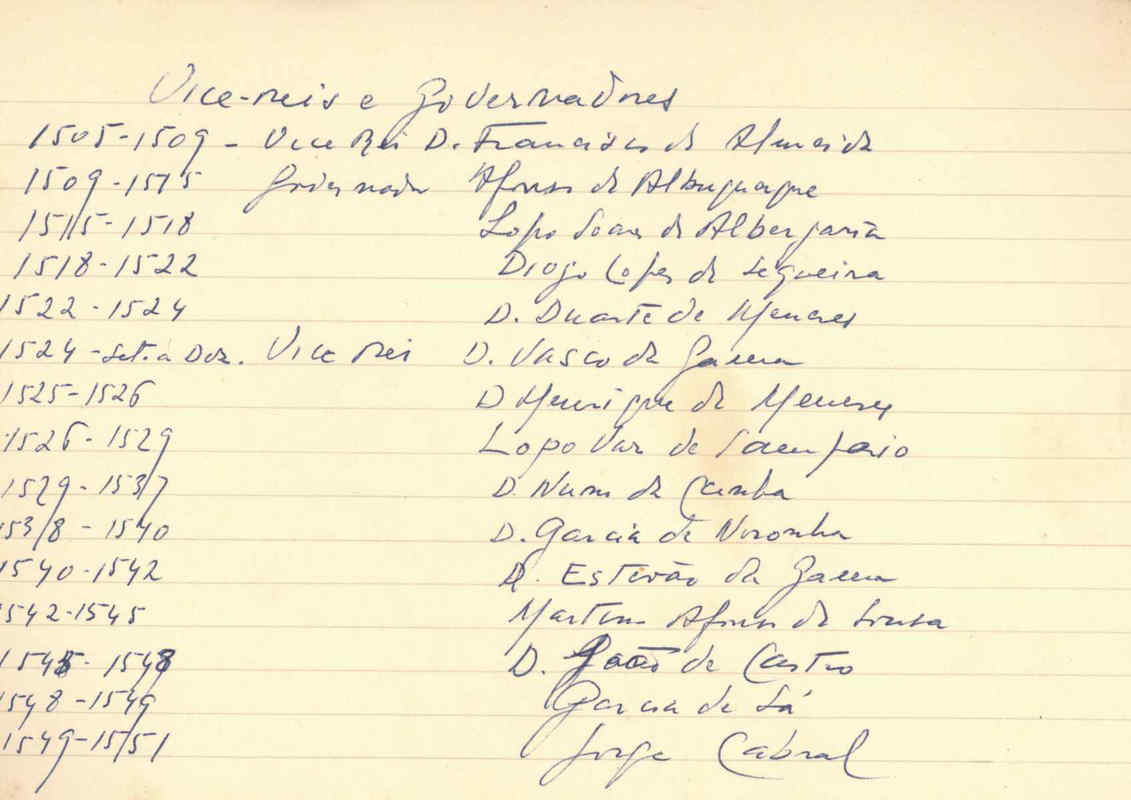 Vice-reis e Governadores
1505-1509 - Vice Rei D. Francisco de Almeida
1509-1515 Governador Afonso de Albuquerque
1515-1518 Lopo Soares de Albergaria
1518-1522 Diogo Lopes de Sequeira
1522-1524 D. Duarte de Meneses
1524-Set. a Dez. Vice Rei D. Vasco da Gama
1525-1526 D Henrique de Meneses
1526-1529 Lopo Vaz de Sampaio
1529-1537 D. Nuno da Cunha
1538-1540 D. Garcia de Noronha
1540-1542 D. Estevão da Gama
1542-1545 Martim Afonso de Sousa
1545-1548 D. João de Castro
1548-1549 Garcia de Sá
1549-1551 Jorge Cabral